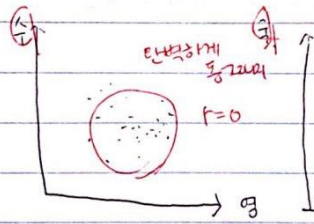 수
완벽하게
동그라미
r=0
영